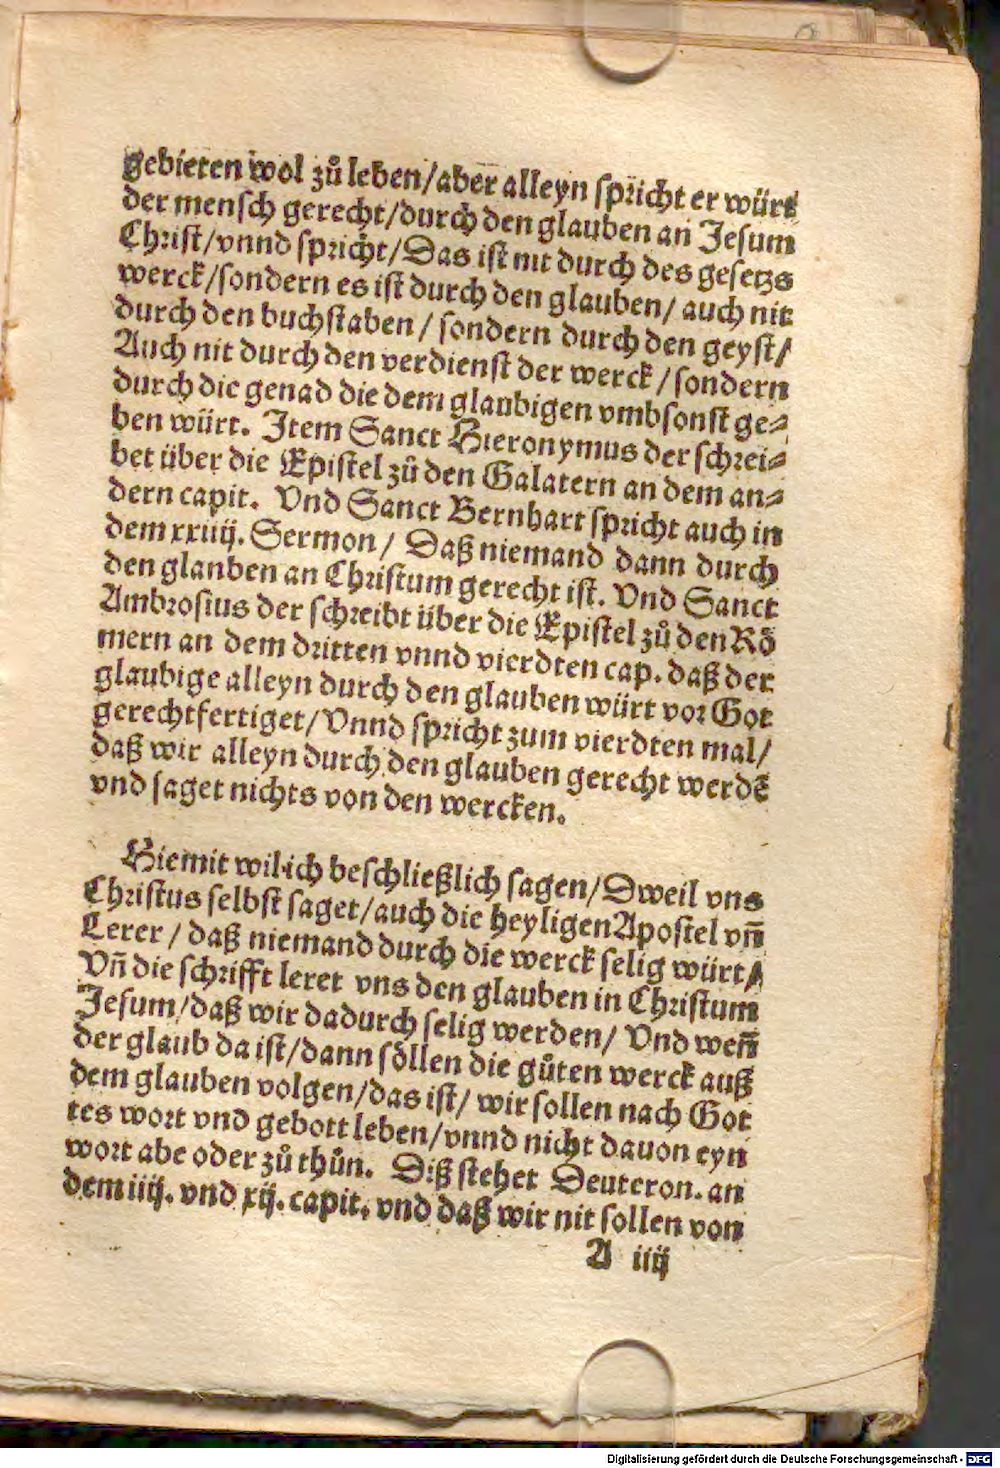 gebieten wol zů leben/aber alleyn spricht er würt
der mensch gerecht/durch den glauben an Jesum
Christ/vnnd spricht/Das ist nit durch des gesetzs
werck/sondern es ist durch den glauben/ auch nit
durch den buchstaben/ sondern durch den geyst/
Auch nit durch den verdienst der werck/sondern
durch die genad die dem glaubigen vmbsonst ge⸗
ben würt. Item Sanct Hieronymus der schrei⸗
bet über die Epistel zů den Galatern an dem an⸗
dern capit. Vnd Sanct Bernhart spricht auch in
dem xxiiij. Sermon/ Daß niemand dann durch
den glanben an Christum gerecht ist. Vnd Sanct
Ambrosius der schreibt über die Epistel zů den Rö
mern an dem dritten vnnd vierdten cap. daß der
glaubige alleyn durch den glauben würt vor Got
gerechtfertiget/Vnnd spricht zum vierdten mal/
daß wir alleyn durch den glauben gerecht werdē
vnd saget nichts von den wercken.
Hiemit wil ich beschließlich sagen/Dweil vns
Christus selbst saget/auch die heyligen Apostel vñ
Lerer/ daß niemand durch die werck selig würt/
Vñ die schrifft leret vns den glauben in Christum
Jesum/daß wir dadurch selig werden/ Vnd weñ
der glaub da ist/dann söllen die gůten werck auß
dem glauben volgen/das ist/ wir sollen nach Got
tes wort vnd gebott leben/vnnd nicht dauon eyn
wort abe oder zů thůn. Diß stehet Deuteron. an
dem iiij. vnd xij. capit. vnd daß wir nit sollen von
A iiij
Digitalisierung gefördert durch die Deutsche Forschungsgemeinschaft - DFG